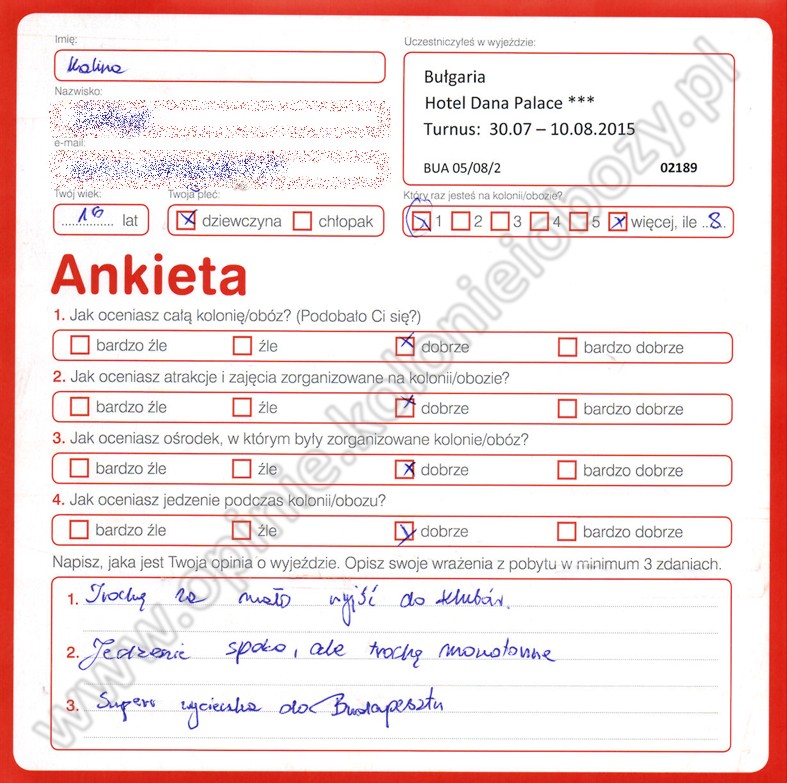 Imię:
Kalina
Uczestniczyłeś w wyjeździe:
Bułgaria
Hotel Dana Palace ***
Turnus: 30.07 – 10.08.2015
BUA 05/08/2 02189
Nazwisko:
e-mail:
Twój wiek:
lat
Twoja płeć:
dziewczyna chłopak
Który raz jesteś na kolonii/obozie?
1 2 3 4 5 więcej, ile ..8..
Ankieta
1. Jak oceniasz całą kolonię/obóz? (Podobało Ci się?)
bardzo źle źle dobrze bardzo dobrze
2. Jak oceniasz atrakcje i zajęcia zorganizowane na kolonii/obozie?
bardzo źle źle dobrze bardzo dobrze
3. Jak oceniasz ośrodek, w którym były zorganizowane kolonie/obóz?
bardzo źle źle dobrze bardzo dobrze
4. Jak oceniasz jedzenie podczas kolonii/obozu?
bardzo źle źle dobrze bardzo dobrze
Napisz, jaka jest Twoja opinia o wyjeździe. Opisz swoje wrażenia z pobytu w minimum 3 zdaniach.
1. Trochę za mało wyjść do klubów.
2. Jedzenie spoko, ale trochę monotonne
3. Super wycieczka do Budapesztu
www.opinie.kolonieiobozy.pl